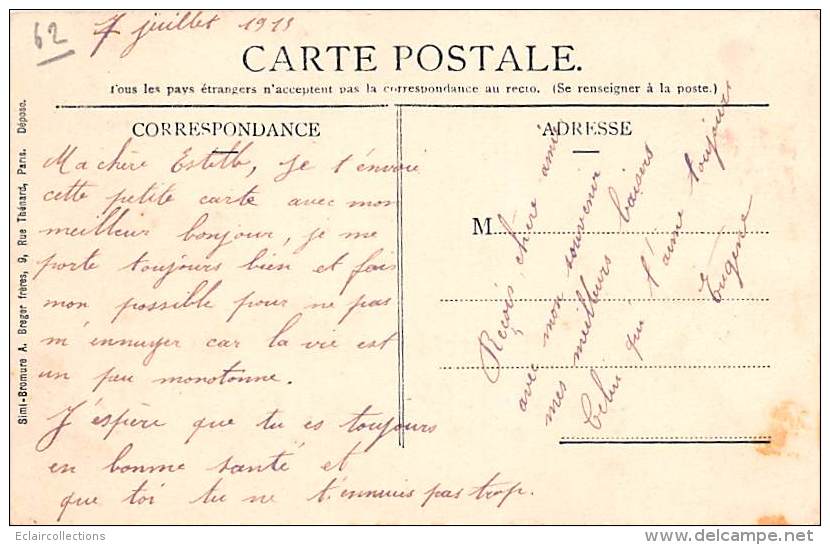 62
7 juillet 1915
CARTE POSTALE.
Tous les pays étrangers n'acceptent pas la correspondance au recto. (Se renseigner à la poste.)
CORRESPONDANCE
Ma chère Estelle, je t'envoie
cette petite carte avec mon
meilleur bonjour, je me
porte toujours bien et fais
mon possible pour ne pas
m'ennuyer car la vie est
un peu monotonne.
J'éspère que tu es toujours
en bonne santé et
que toi tu ne t'ennuis pas trop.
ADRESSE
M
Reçois, chère amie
avec mon souvenir
mes meilleurs baisers
Celui qui t'aime toujours
Eugène
Simi-Bromure A. Breger frères, 9, Rue Thénard, Paris. Déposé.
Eclaircollections
delcampe.net